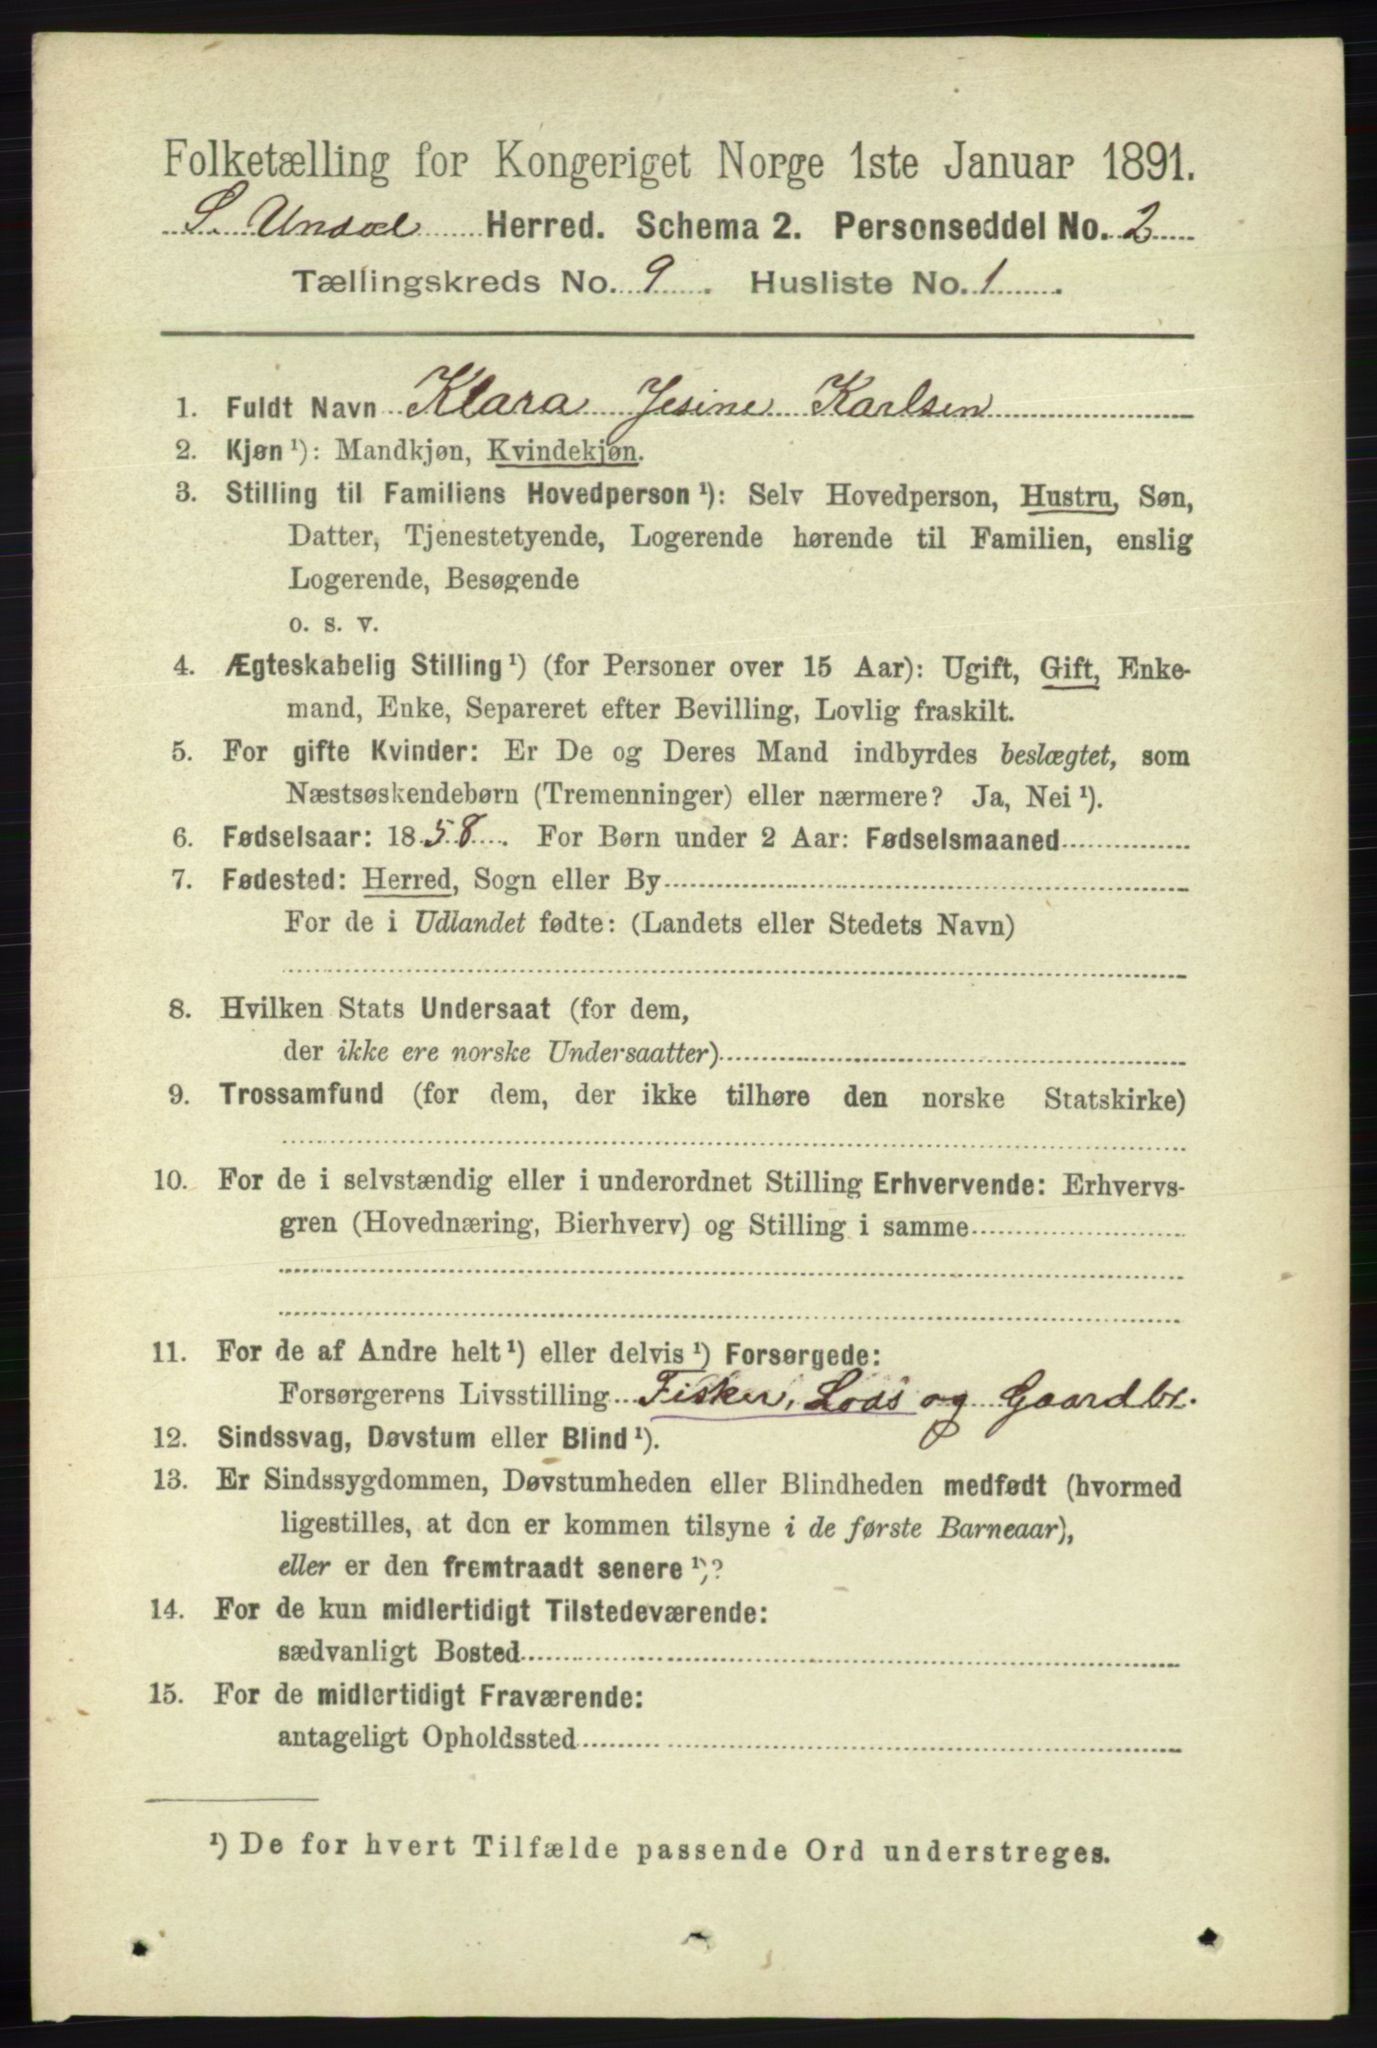 Folketælling for Kongeriget Norge 1ste Januar 1891.
S. Undal Herred. Schema 2. Personseddel No. 2
Tællingskreds No. 9. Husliste No. 1.
1. Fuldt Navn Klara Jesine Karlsen
2. Kjøn ¹): Mandkjøn, Kvindekjøn.
3. Stilling til Familiens Hovedperson ¹): Selv Hovedperson, Hustru, Søn,
Datter, Tjenestetyende, Logerende hørende til Familien, enslig
Logerende, Besøgende
o. s. v.
4. Ægteskabelig Stilling ¹) (for Personer over 15 Aar): Ugift, Gift, Enke-
mand, Enke, Separeret efter Bevilling, Lovlig fraskilt.
5. For gifte Kvinder: Er De og Deres Mand indbyrdes beslægtet, som
Næstsøskendebørn (Tremenninger) eller nærmere? Ja, Nei ¹).
6. Fødselsaar: 1858. For Børn under 2 Aar: Fødselsmaaned
7. Fødested: Herred, Sogn eller By
For de i Udlandet fødte: (Landets eller Stedets Navn)
8. Hvilken Stats Undersaat (for dem,
der ikke ere norske Undersaatter)
9. Trossamfund (for dem, der ikke tilhøre den norske Statskirke)
10. For de i selvstændig eller i underordnet Stilling Erhvervende: Erhvervs-
gren (Hovednæring, Bierhverv) og Stilling i samme
11. For de af Andre helt ¹) eller delvis ¹) Forsørgede:
Forsørgerens Livsstilling Fisker, Lods og Gaardbr.
12. Sindssvag, Døvstum eller Blind ¹).
13. Er Sindssygdommen, Døvstumheden eller Blindheden medfødt (hvormed
ligestilles, at den er kommen tilsyne i de første Barneaar),
eller er den fremtraadt senere ¹)?
14. For de kun midlertidigt Tilstedeværende:
sædvanligt Bosted
15. For de midlertidigt Fraværende:
antageligt Opholdssted
¹) De for hvert Tilfælde passende Ord understreges.